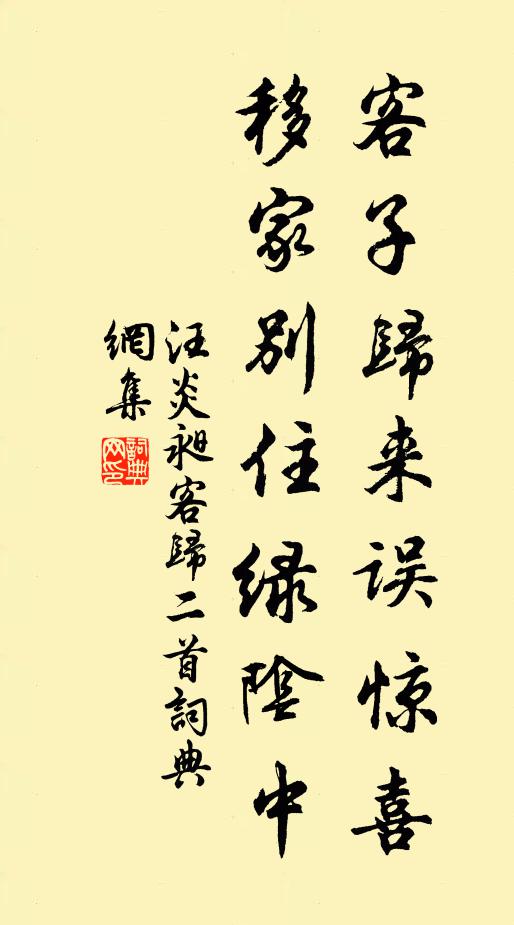 客子歸来误惊喜
移家别住绿陰中
汪炎昶客歸二首詞典
網集
詞典網印